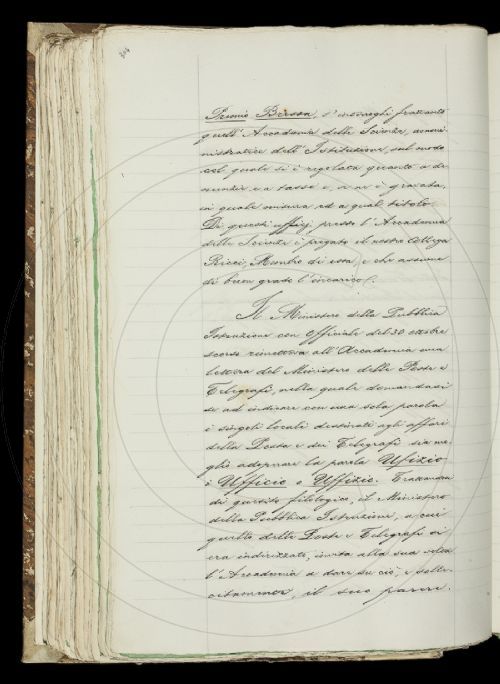 Premio Bressa, s'interroghi frattanto
quell'Accademia delle Scienze, ammi-
nistratrice dell'Istituzione, sul modo
col quale si è regolata quanto a de-
nunzie e a tasse e, se ne è gravata,
in quale misura ed a qual titolo.
Di questi uffizj presso l'Accademia
delle Scienze è pregato il nostro Collega
Ricci, Membro di essa, e che assume
di buon grado l'incarico.
Il Ministero della Pubblica
Istruzione con officiale del 30 ottobre
scorso rimetteva all'Accademia una
lettera del Ministero delle Poste e
Telegrafi, nella quale domandava
se ad indicare con una sola parola
i singoli locali destinati agli affari
della Posta e dei Telegrafi sia me-
glio adoprare la parola Ufizio
o Ufficio o Uffizio. Trattandosi
di quesito filologico, il Ministero
della Pubblica Istruzione, a cui
quello delle Poste e Telegrafi si
era indirizzato, invita alla sua volta
l'Accademia a dare su ciò, e solle-
citamente, il suo parere.